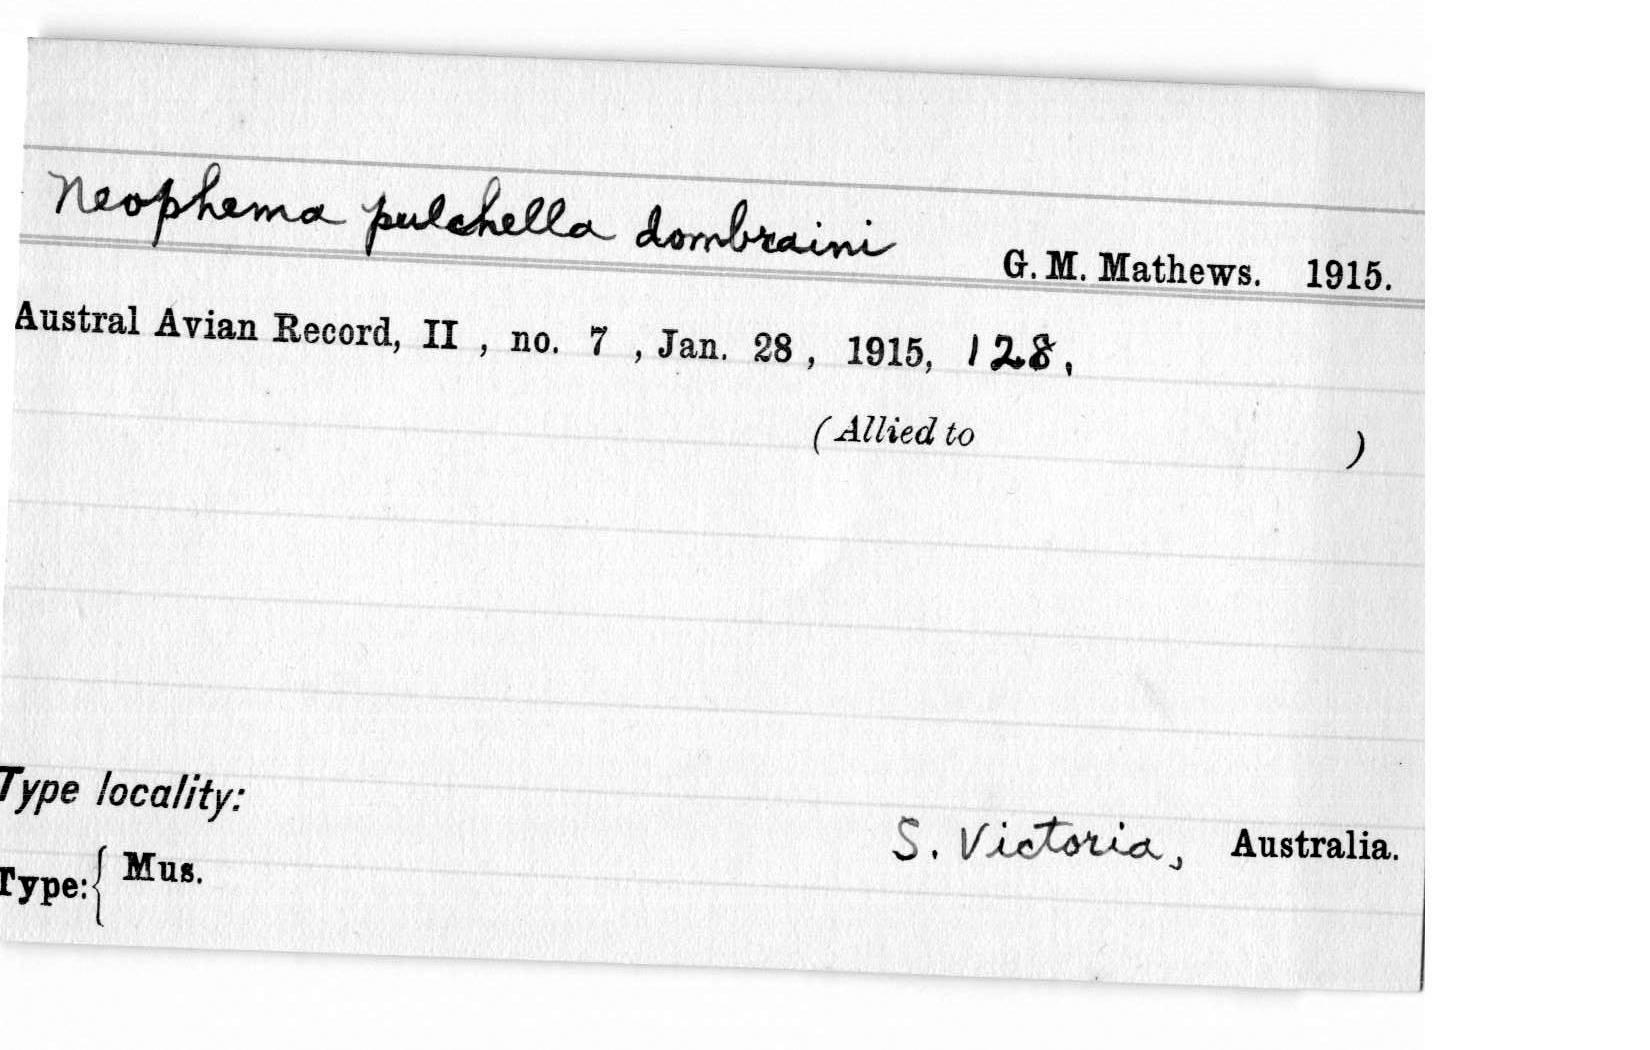 Neophema pulchella dombraini G. M. Mathews. 1915.
Austral Avian Record, II , no. 7 , Jan. 28 , 1915, 128.
(Allied to )
Type locality:
S. Victoria, Australia.
Type: { Mus.